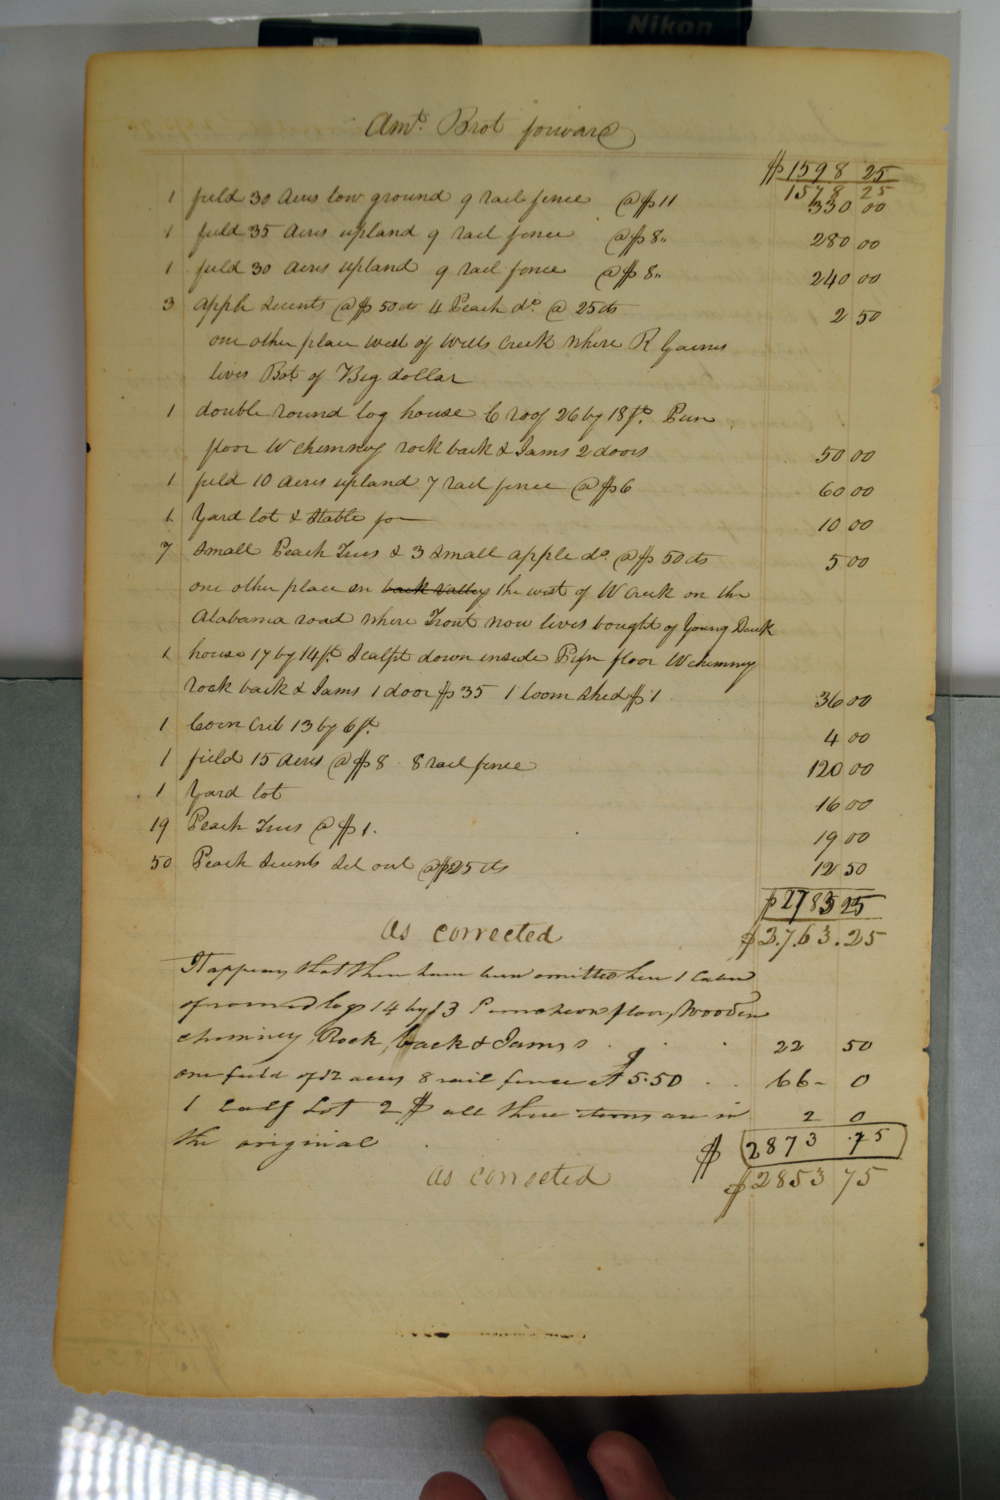 Nikon
Amt. Brot forward
$1598 25
1578 25
1 field 30 acres low ground 9 rail fence @ $11 330 00
1 field 35 acres upland 9 rail fence @ $8" 280 00
1 field 30 acres upland 9 rail fence @ $8" 240 00
3 apple scients @ $50 cts 4 Peach do. @ 25 cts 2 50
one other place west of Wills Creek where R Gaines
lives Bot of Big dollar
1 double round log house C roof 26 by 18 ft. Pun
floor W chimney rock back & Jams 2 doors 50 00
1 field 10 acres upland 7 rail fence @ $6 60 00
1 Yard lot & Stable for 10 00
7 small Peach Trees & 3 small apple do @ $50 cts 5 00
one other place on back valley the west of W Creek on the
Alabama road where Trout now lives bought of Young Duck
1 house 17 by 14 ft. Scalpt down inside Pun floor W chimney
rock back & Jams 1 door $35 1 loom shed $1. 36 00
1 Corn Crib 13 by 6 ft. 4 00
1 field 15 acres @ $8 8 rail fence 120 00
1 Yard lot 16 00
19 Peach Trees @ $1. 19 00
50 Peach Scients set out @ $25 cts 12 50
$2783 25
as corrected $2.7.63.25
It appears that there have been omitted here 1 Cabin
of round logs 14 by 13 Puncheon floor, Wooden
chimney, Rock, back & Jams . . . 22 50
one field of 12 acres 8 rail fence at $5.50 . . 66 - 0
1 Calf Lot 2 $ all these items are in 2 0
the original . $ 2873 .75
as corrected $2853 75